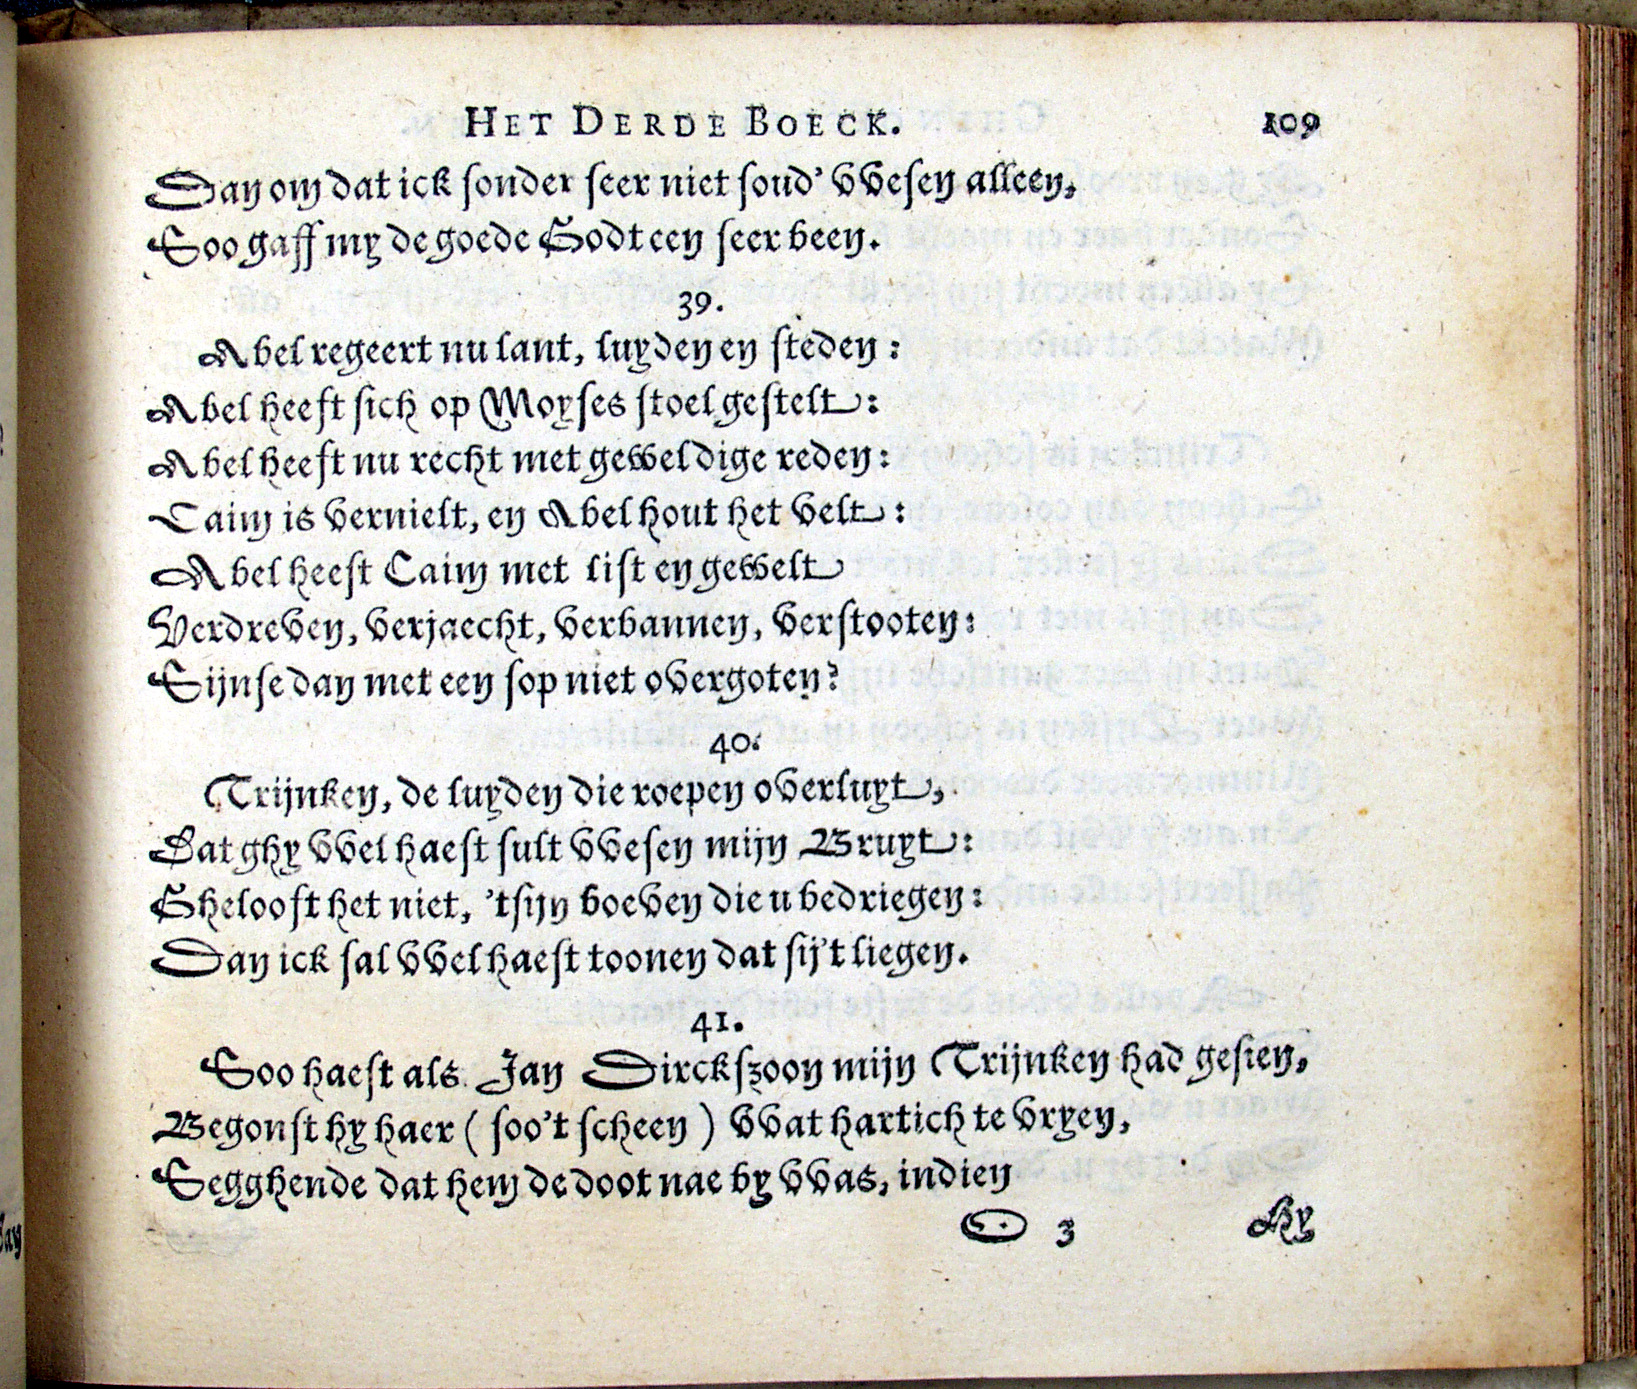 HET DERDE BOECK. 109
Dan om dat ick sonder seer niet soud' vvesen alleen,
Soo gaff my de goede Godt een seer been.
39.
Abel regeert nu lant, luyden en steden:
Abel heeft sich op Moyses stoel gestelt:
Abel heeft nu recht met geweldige reden:
Caim is vernielt, en Abel hout het velt:
Abel heest Caim met list en gewelt
Verdreven, verjaecht, verbannen, verstooten:
Sijnse dan met een sop niet overgoten?
40.
Trijnken, de luyden die roepen overluyt,
Dat ghy vvel haest sult vvesen mijn Bruyt:
Ghelooft het niet, 'tsijn boeven die u bedriegen:
Dan ick sal vvel haest toonen dat sij't liegen.
41.
Soo haest als Jan Dirckszoon mijn Trijnken had gesien,
Begonst hy haer ( soo't scheen ) vvat hartich te vryen,
Segghende dat hem de doot nae by vvas, indien
O 3 Hy